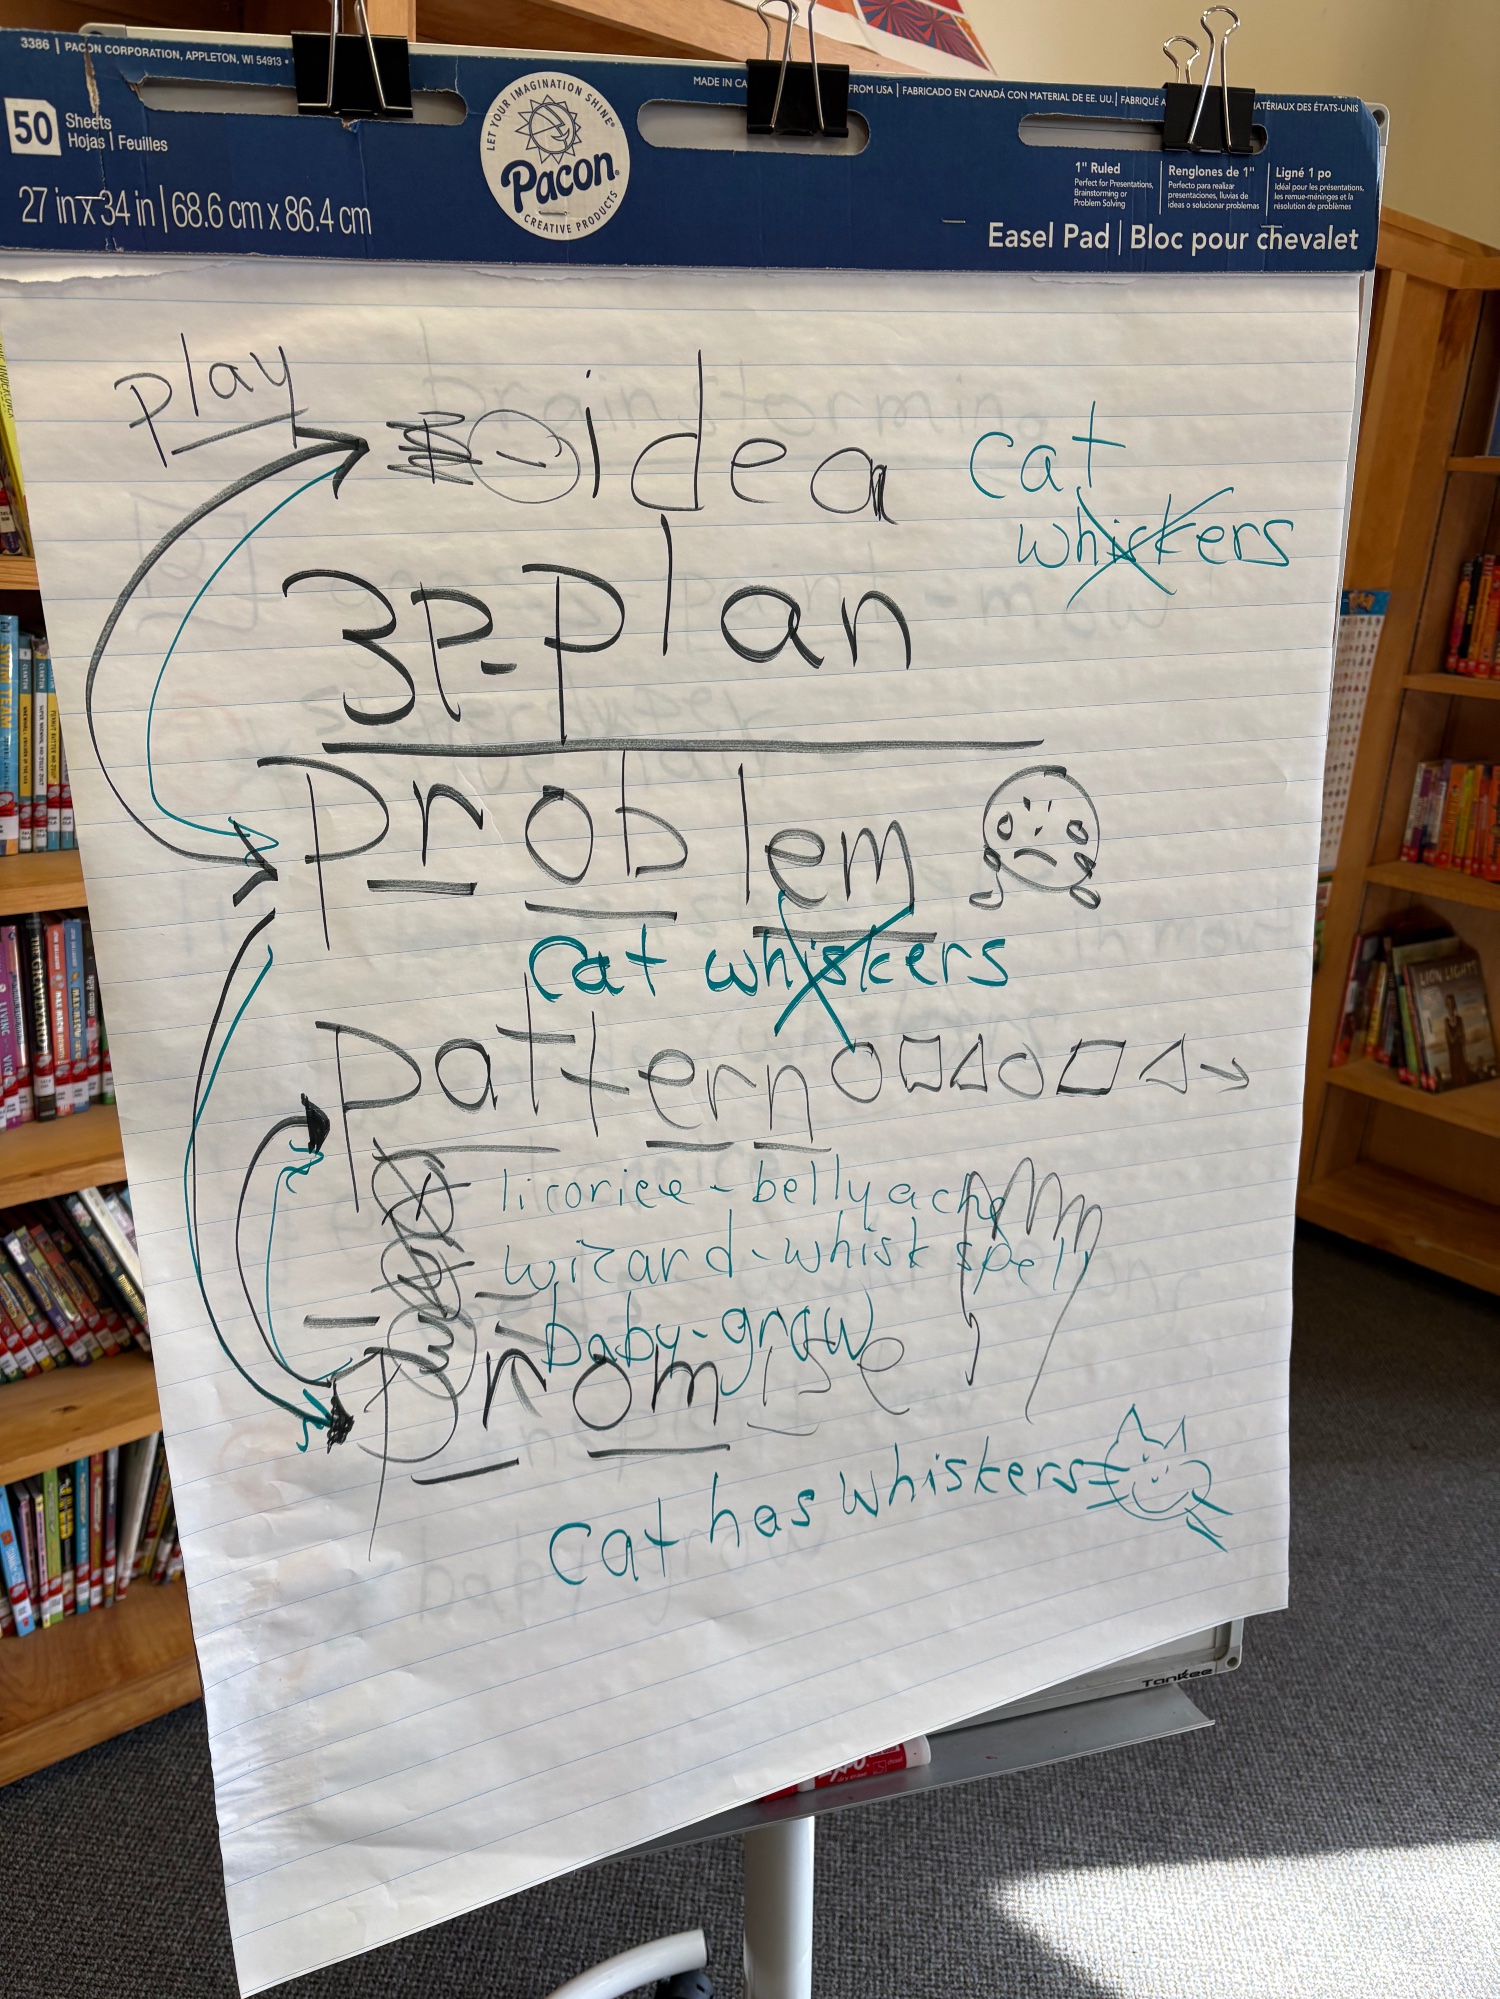 3386 | PACON CORPORATION, APPLETON, WI 54913 •
MADE IN CA
FROM USA | FABRICADO EN CANADÁ CON MATERIAL DE EE. UU. | FABRIQUÉ A
MATÉRIAUX DES ÉTATS-UNIS
50 Sheets
Hojas | Feuilles
27 in x 34 in | 68.6 cm x 86.4 cm
LET YOUR IMAGINATION SHINE®
Pacon®
CREATIVE PRODUCTS
1" Ruled
Perfect for Presentations,
Brainstorming or
Problem Solving
Renglones de 1"
Perfecto para realizar
presentaciones, lluvias de
ideas o solucionar problemas
Ligné 1 po
Idéal pour les présentations,
les remue-méninges et la
résolution de problèmes
Easel Pad | Bloc pour chevalet
play
idea cat
whiskers
3P-Plan
Problem
cat whiskers
Pattern
licoricee - bellyache
wizard - whisk spell
baby - graw
Promise
cat has whiskers
Tankee
LION LIGHTS
SWIM TEAM